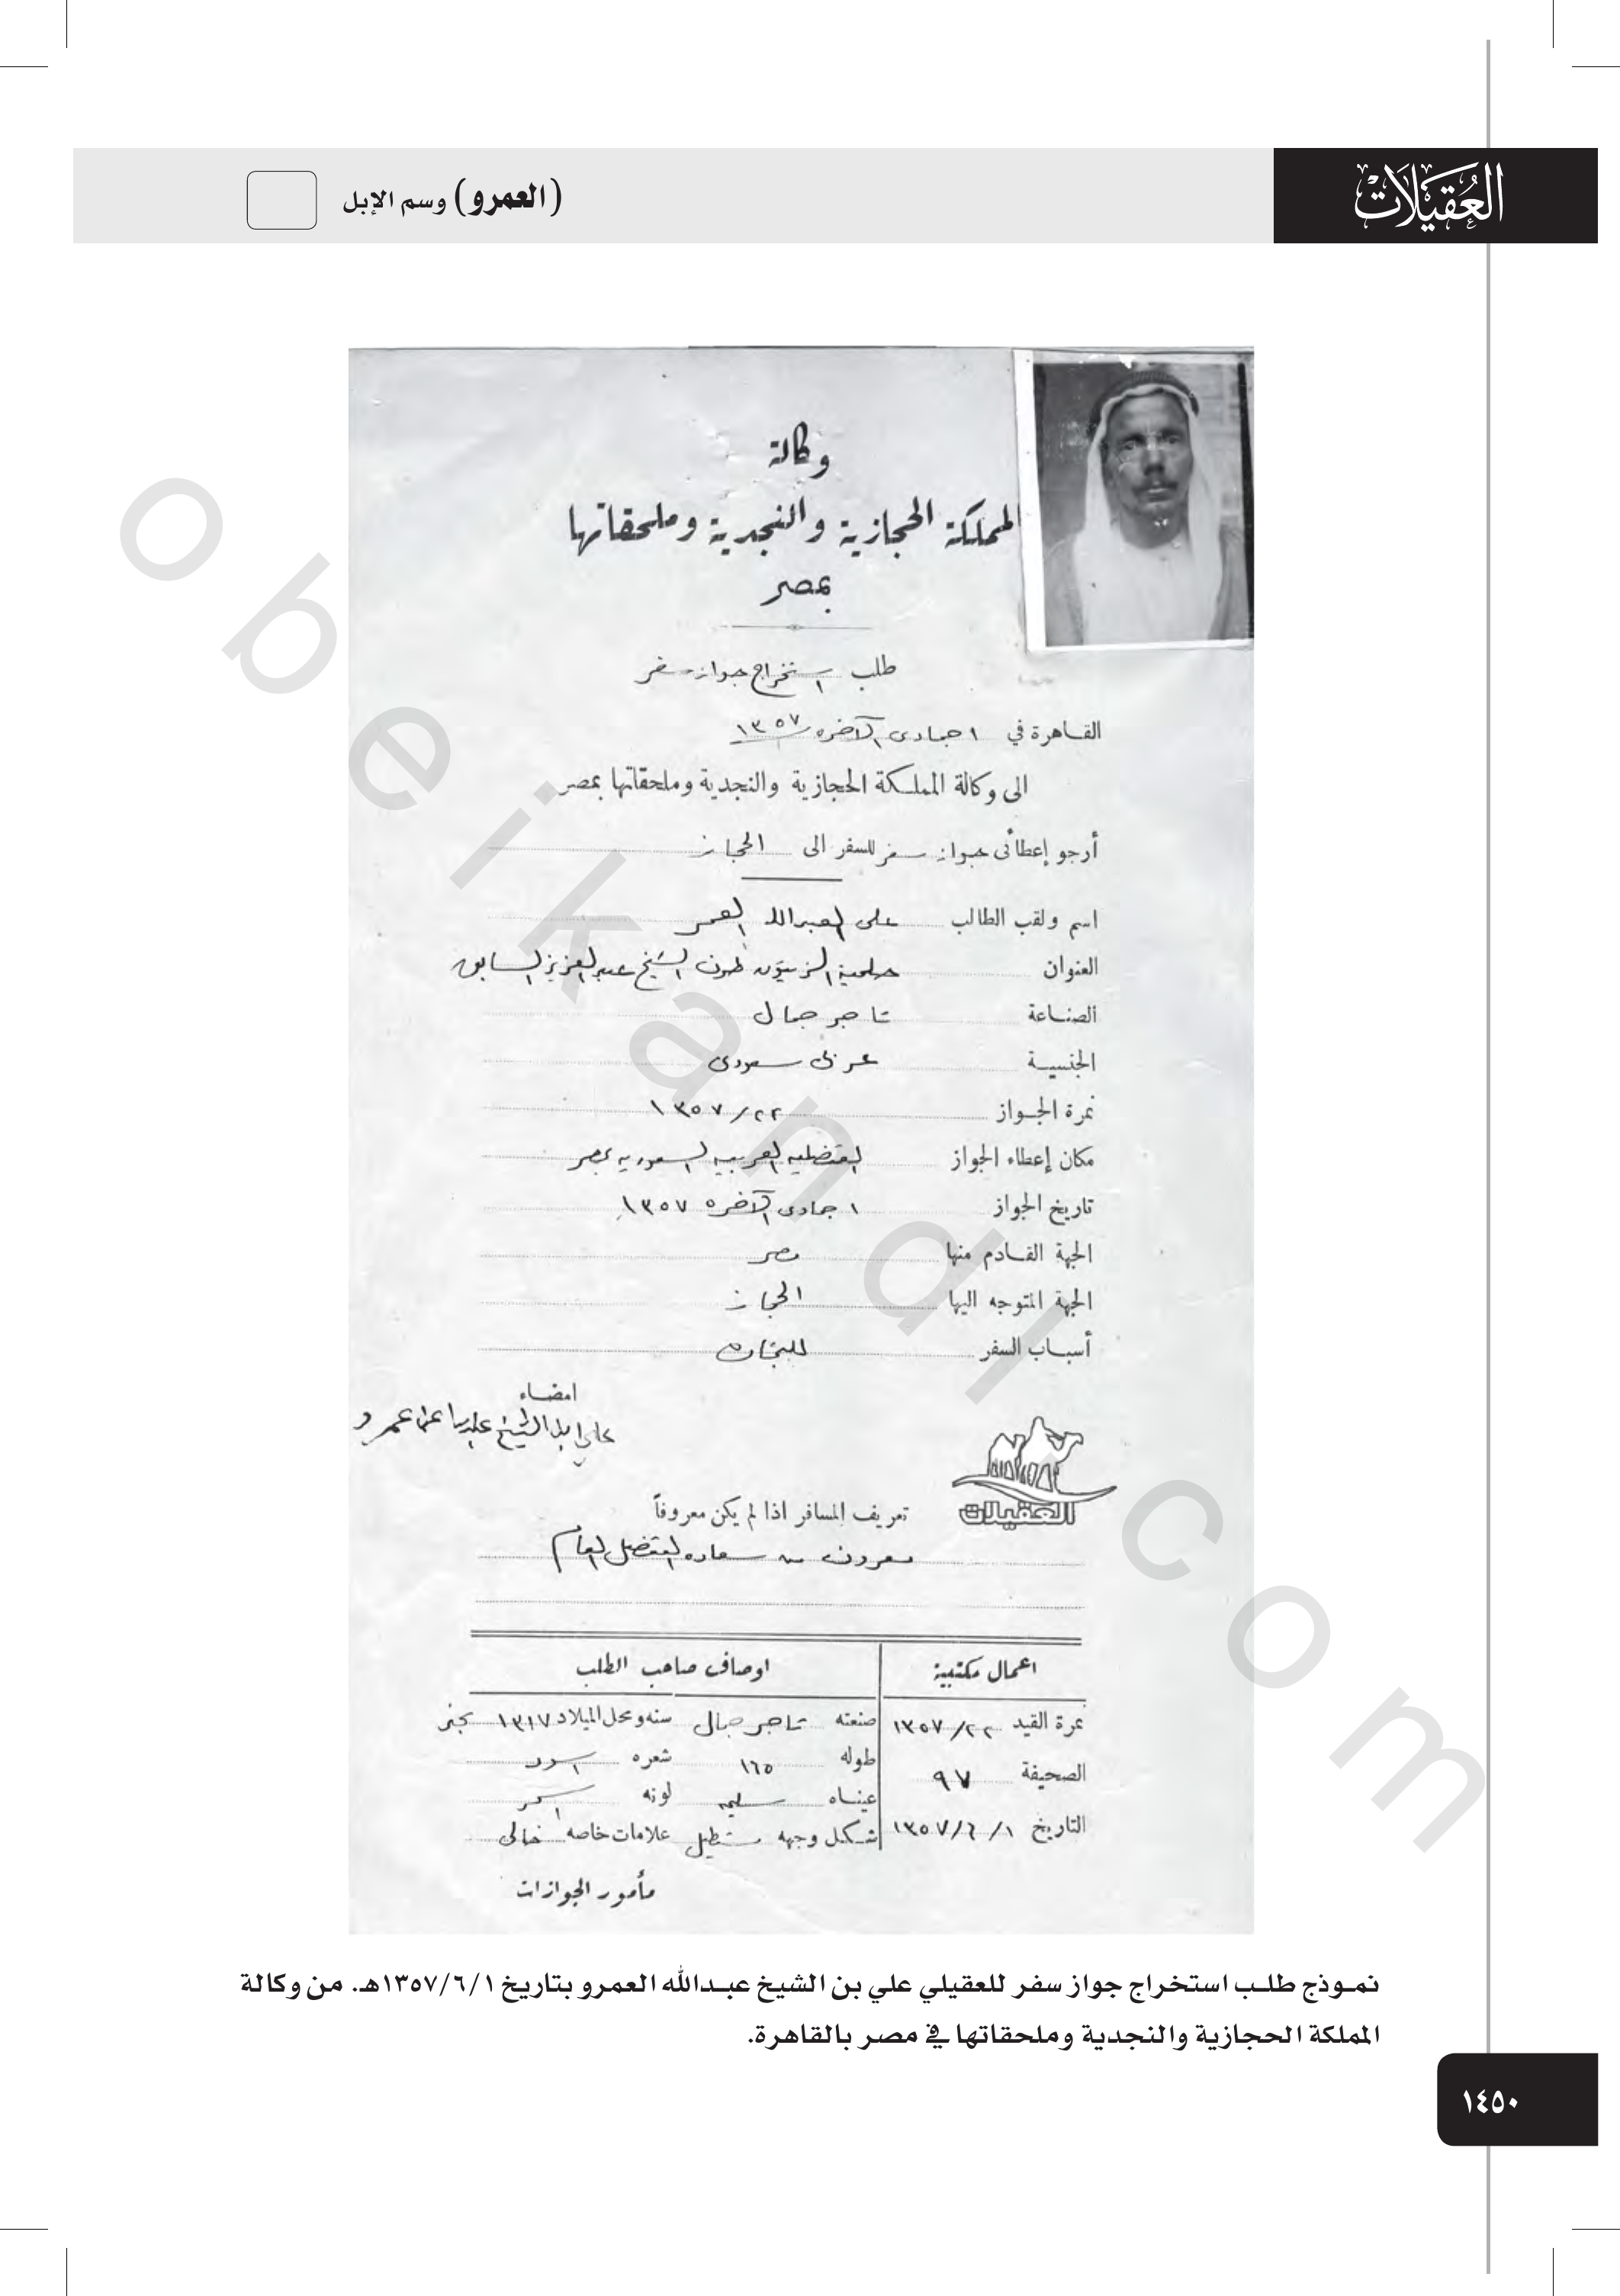 العُقيلات
(العمرو) وسم الإبل
وكالة
المملكة الحجازية والنجدية وملحقاتها
بمصر
طلب استخراج جواز سفر
القاهرة في ١ جمادى الآخره ١٣٥٧
الى وكالة المملكة الحجازية والنجدية وملحقاتها بمصر
أرجو إعطائى جواز سفر للسفر الى الحجاز
اسم ولقب الطالب على العبدالله العمر
العنوان حلمية الزيتون طرف الشيخ عبدالعزيز السابق
الصناعة تاجر جمال
الجنسية عربى سعودى
نمرة الجواز ٢٢/١٣٥٧
مكان إعطاء الجواز القنصليه العربيه السعوديه بمصر
تاريخ الجواز ١ جمادى الآخره ١٣٥٧
الجهة القادم منها مصر
الجهة المتوجه اليها الحجاز
أسباب السفر للتجاره
امضاء
علي ابن الشيخ عمرو
العقيلات
تعريف المسافر اذا لم يكن معروفاً
معروف من سعاده القنصل العام
اعمال مكتبية
اوصاف صاحب الطلب
نمرة القيد ٢٢/١٣٥٧ صنعته تاجر جمال سنه ومحل الميلاد ١٣١٧ نجد
الصحيفة ٩٧ طوله ١٦٥ شعره اسود
عيناه سليمه لونه اسمر
التاريخ ١/٦/١٣٥٧ شكل وجهه مستطيل علامات خاصه خالى
مأمور الجوازات
نموذج طلب استخراج جواز سفر للعقيلي علي بن الشيخ عبدالله العمرو بتاريخ ١/٦/١٣٥٧هـ. من وكالة
المملكة الحجازية والنجدية وملحقاتها في مصر بالقاهرة.
١٤٥٠
obeikandl.com